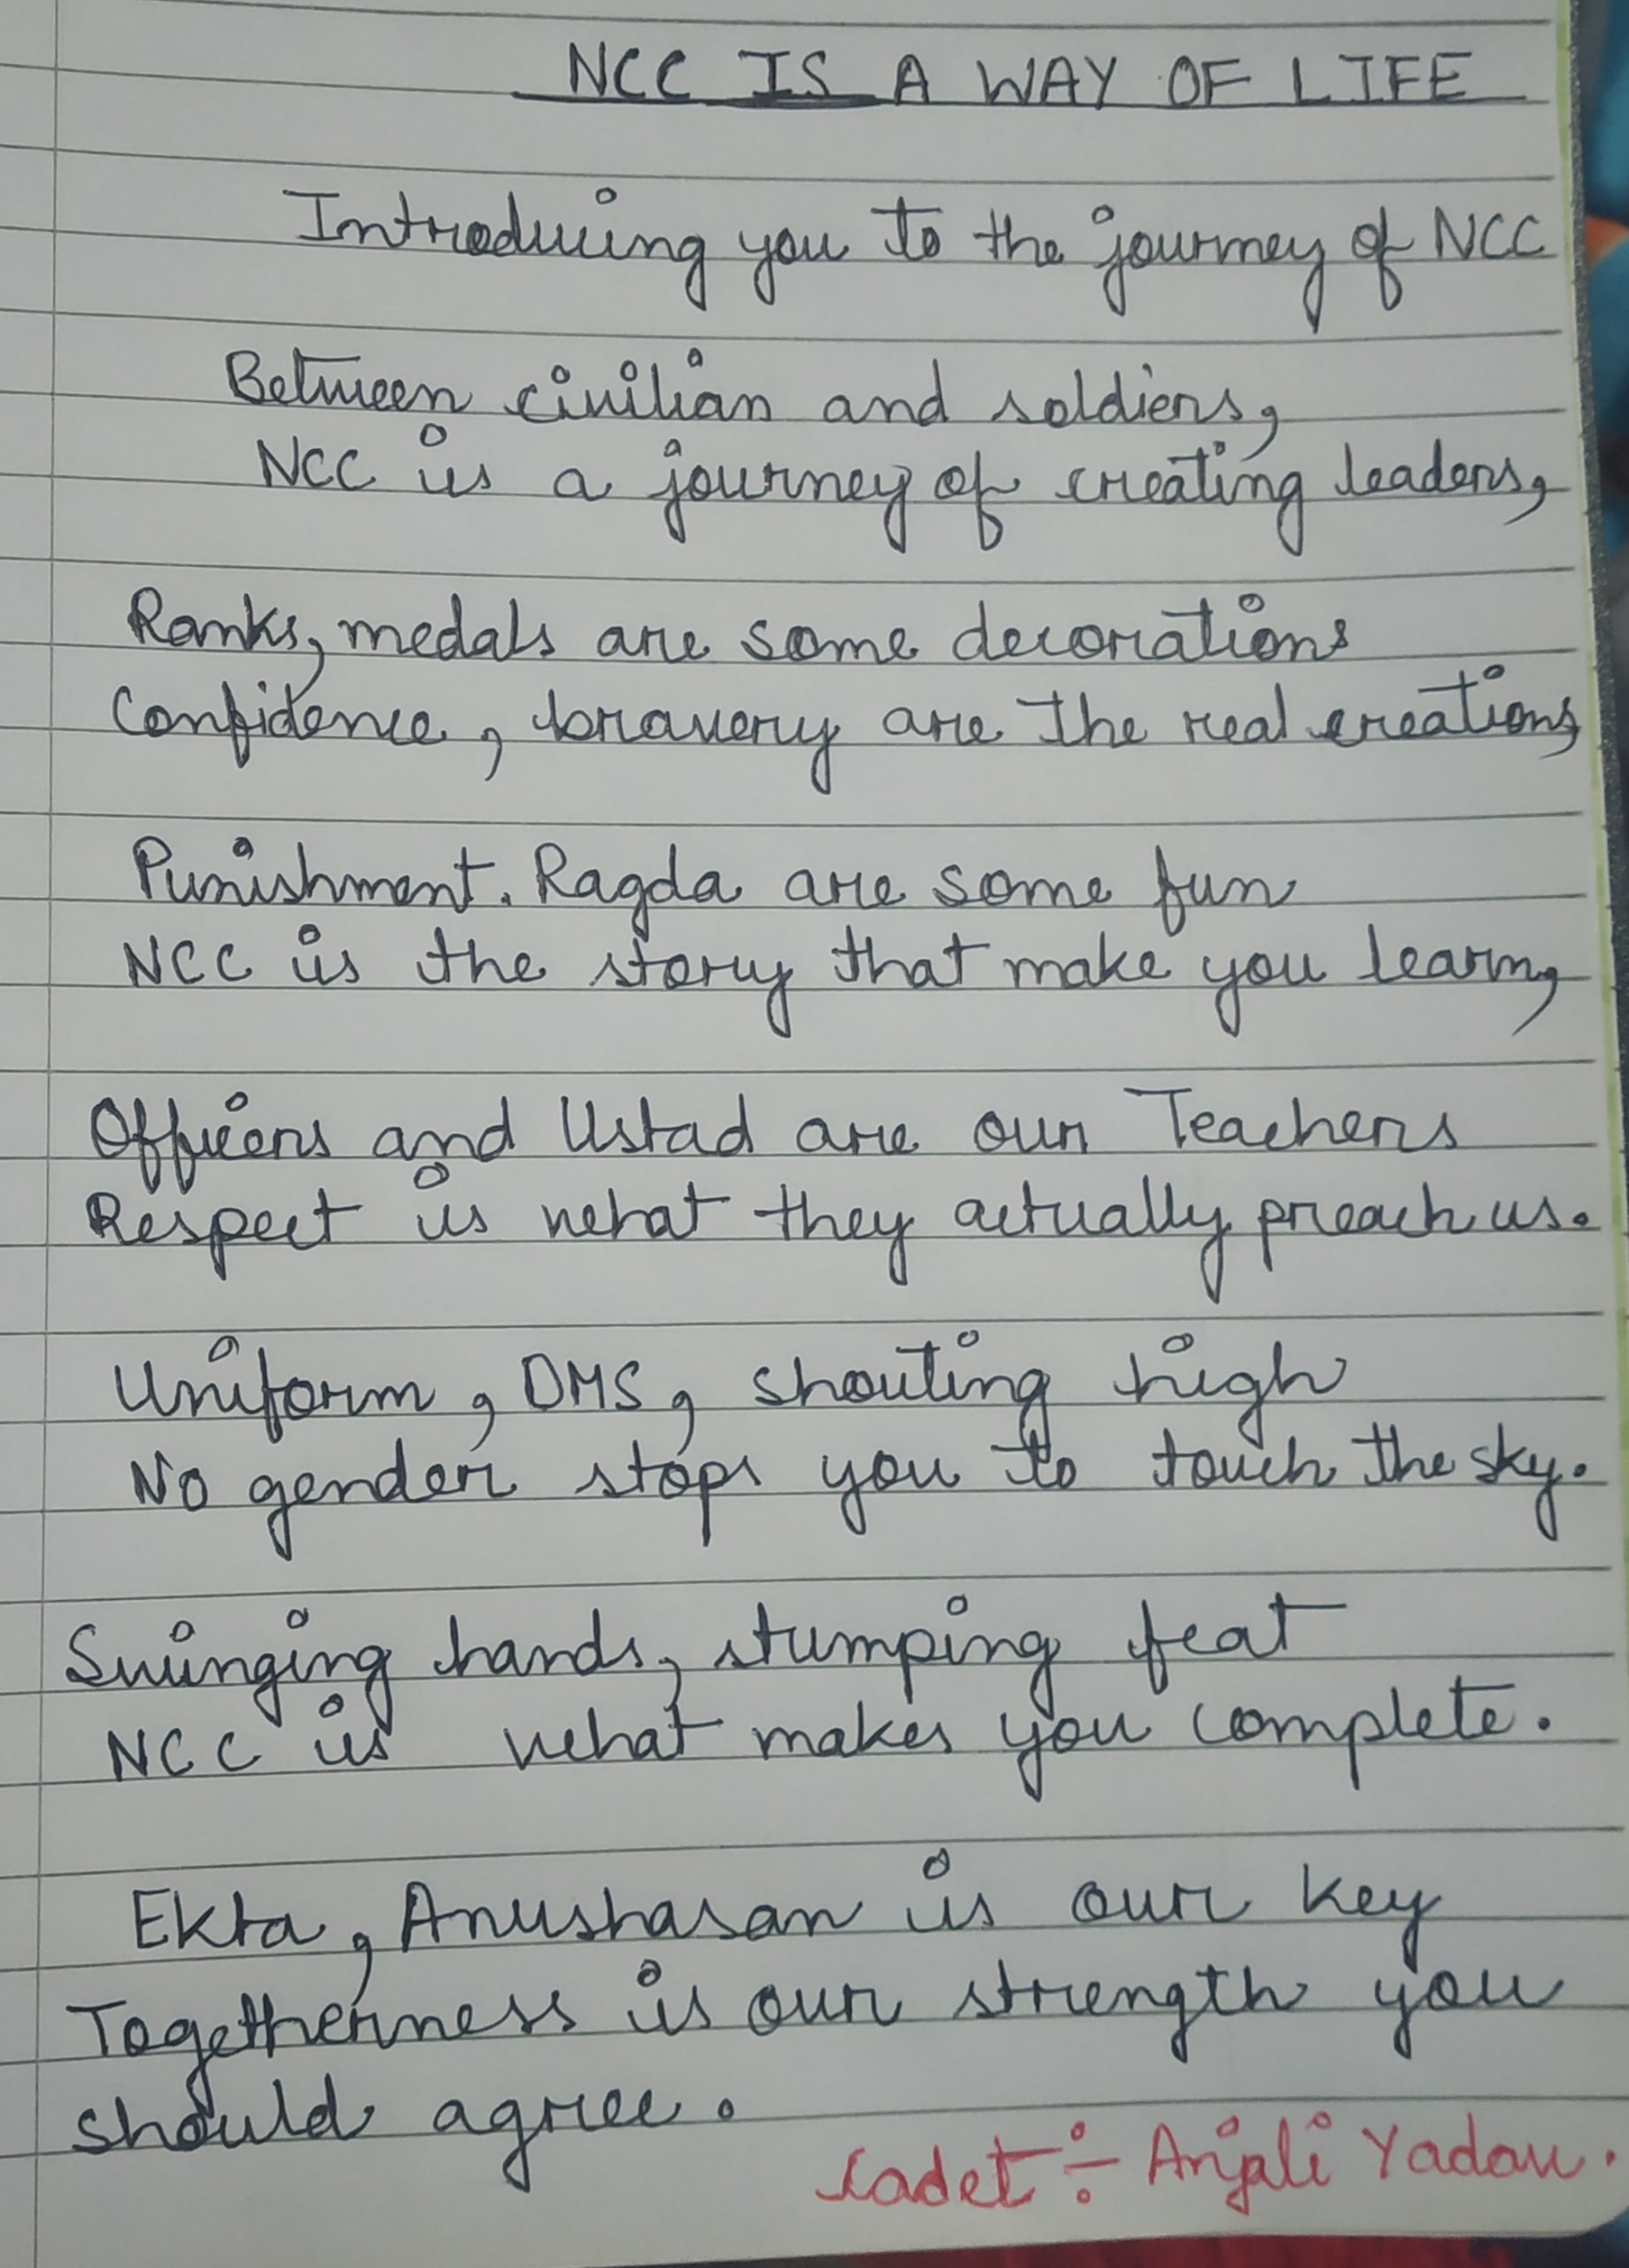 NCC IS A WAY OF LIFE
Introducing you to the journey of NCC
Between civilian and soldiers,
NCC is a journey of creating leaders,
Ranks, medals are some decorations
Confidence, bravery are the real creations,
Punishment. Ragda are some fun
NCC is the story that make you learn,
Officers and Ustad are our Teachers
Respect is what they actually preach us.
Uniform, DMS, shouting high
No gender stops you to touch the sky.
Swinging hands, stumping feat
NCC is what makes you complete.
Ekta, Anushasan is our key
Togetherness is our strength you
should agree.
Cadet ÷ Anjali Yadav.